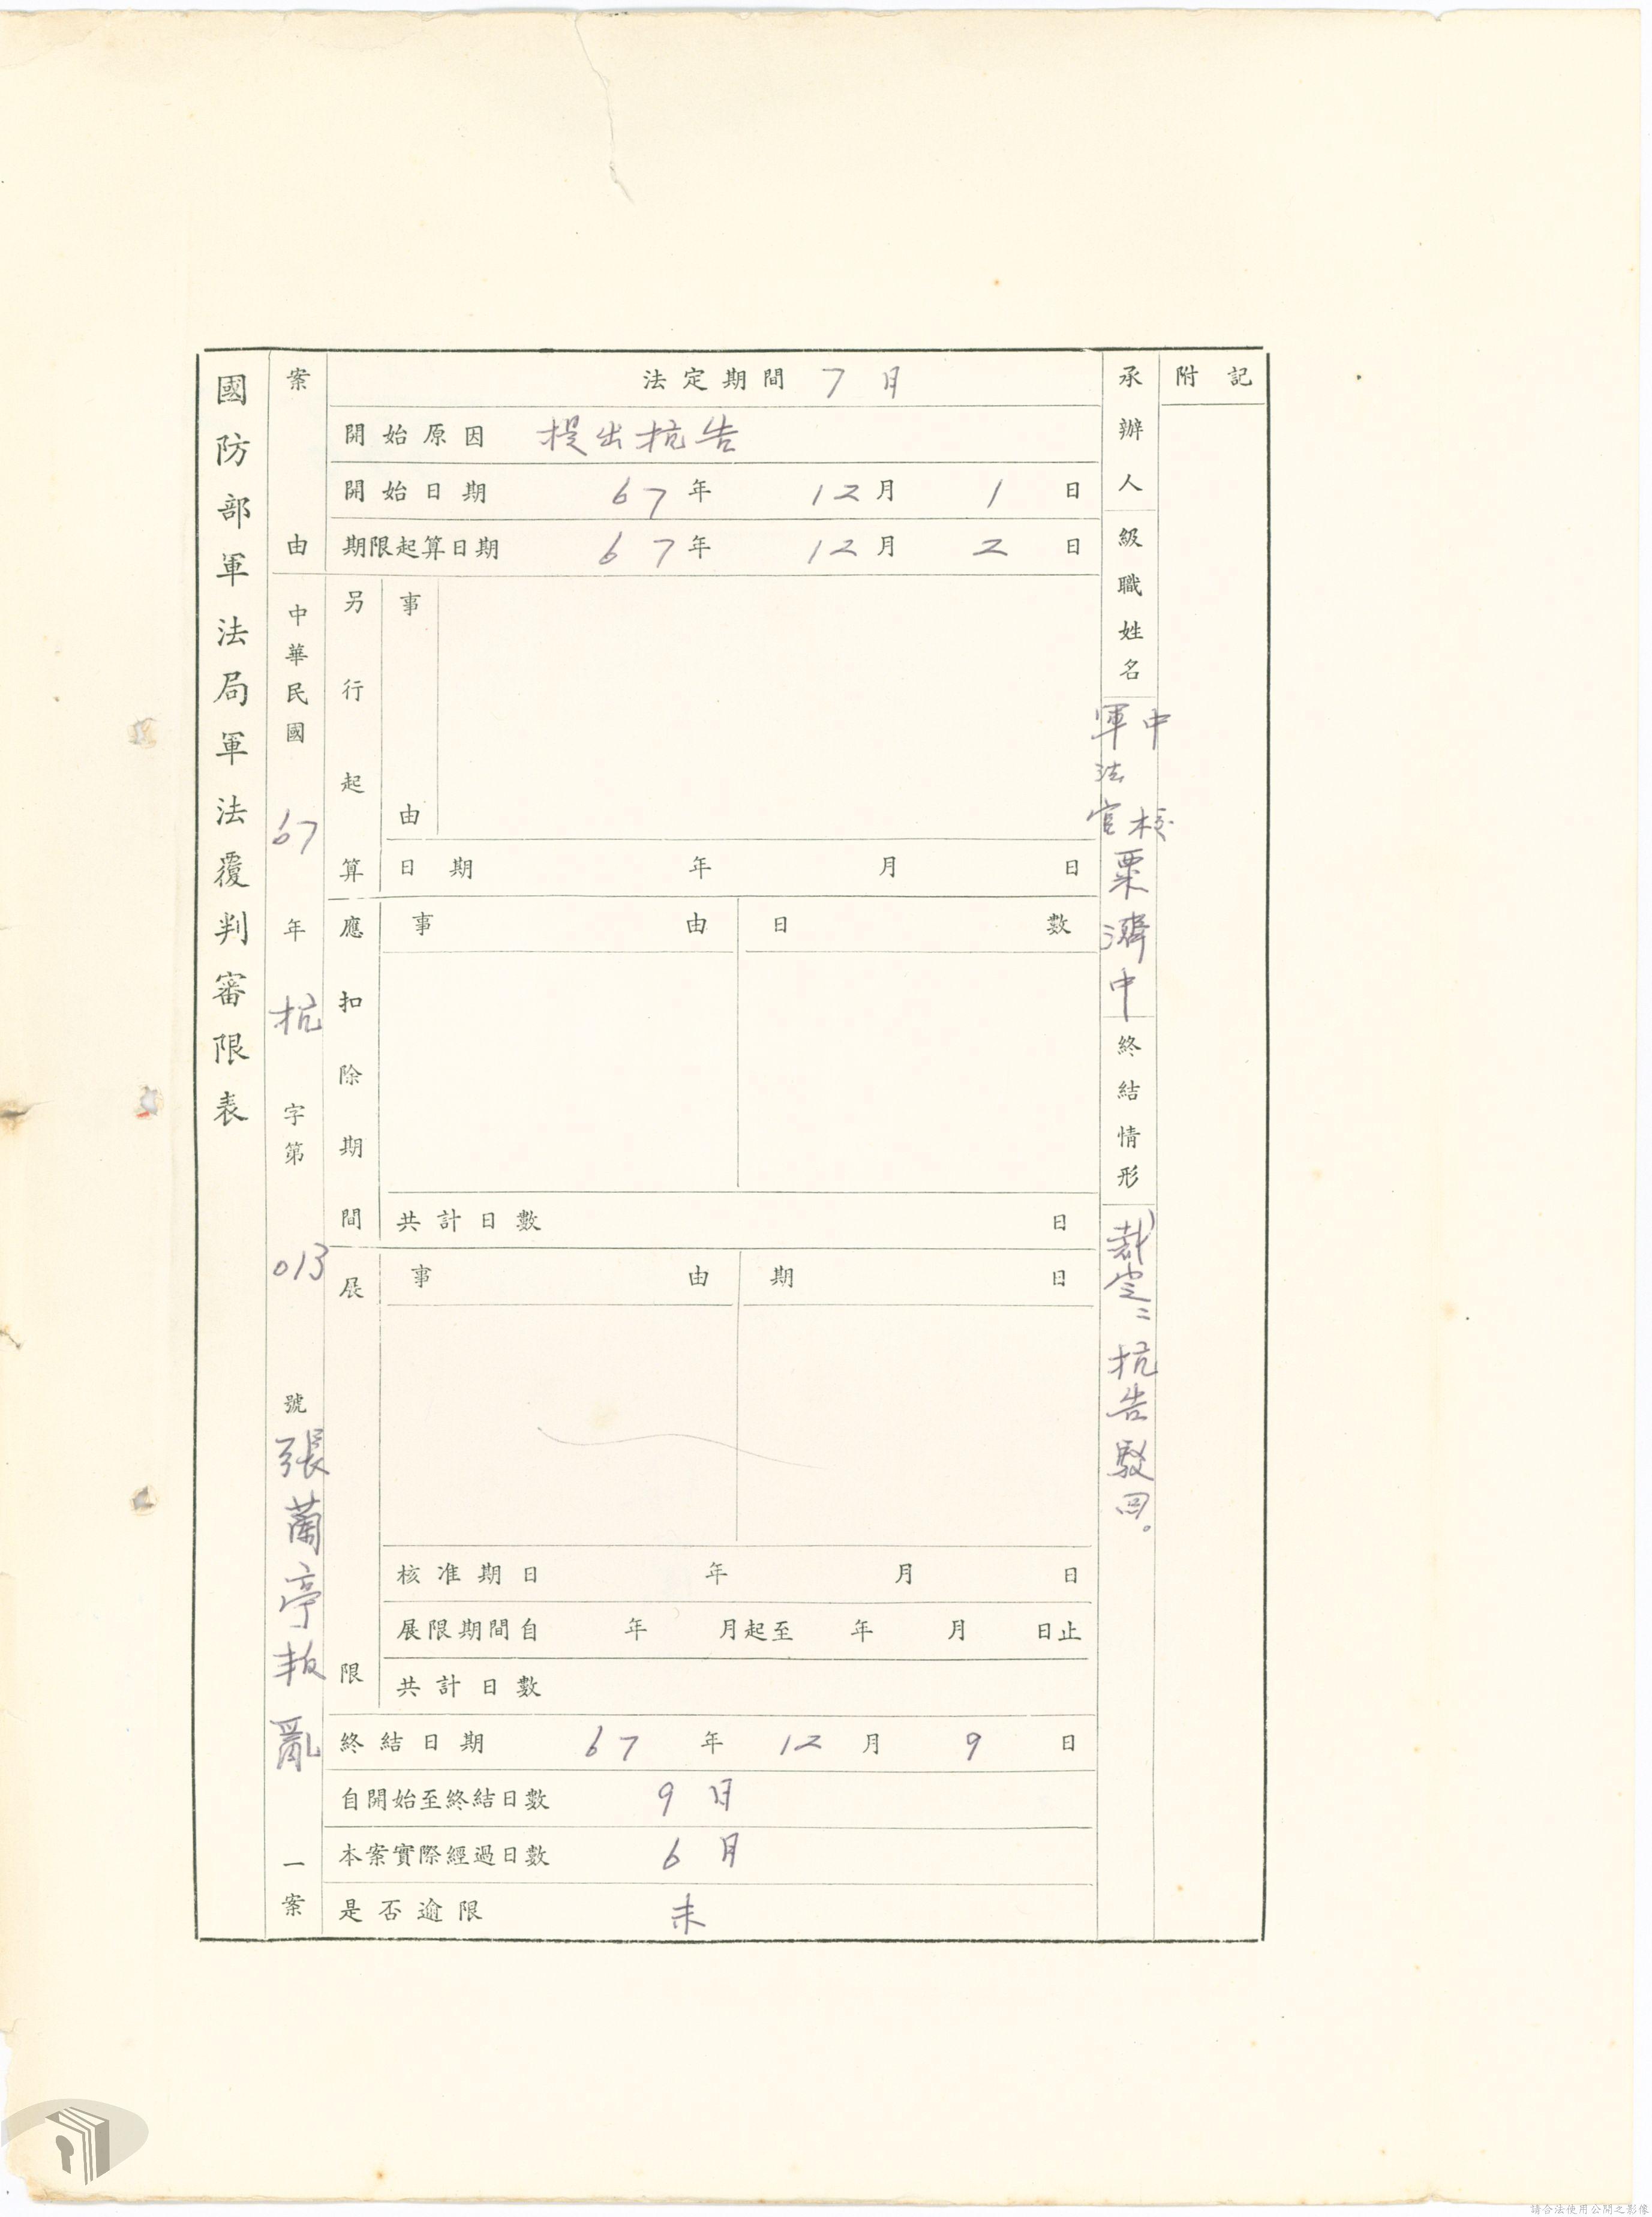 國防部軍法局軍法覆判審限表
案由
中華民國67年抗字第013號張蘭亭叛亂一案
法定期間 7日
開始原因 提出抗告
開始日期 67年 12月 1日
期限起算日期 67年 12月 2日
另行起算
事由
日期 年 月 日
應扣除期間
事由 日數
共計日數 日
展限
事由 期日
核准期日 年 月 日
展限期間自 年 月起至 年 月 日止
共計日數
終結日期 67年 12月 9日
自開始至終結日數 9日
本案實際經過日數 6日
是否逾限 未
承辦人級職姓名
中校
軍法官
粟濟中
終結情形
裁定：抗告駁回。
附記
請合法使用公開之影像